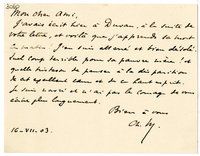 Mon cher Ami,
J'avais écrit hier à Duran, à la suite de
votre lettre, et voilà que j'apprends sa mort
ce matin! J'en suis atterré et bien désolé.
Quel coup terrible pour sa pauvre mère! et
quelle tristesse de penser à la disparition
de cet excellent cœur et de ce haut esprit.
Je suis navré et n'ai pas le courage de vous
écrire plus longuement.
Bien à vous
16.VII.03.